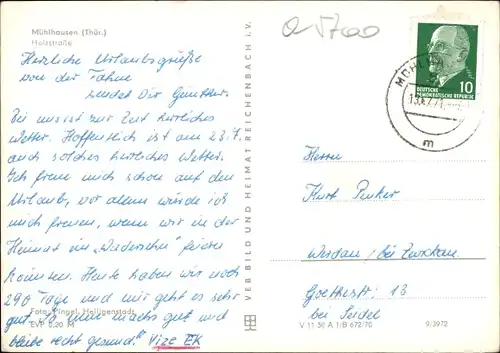 Mühlhausen (Thür.)
Holzstraße
Herzliche Urlaubsgrüße
von der Fahne
sendet Dir Günther.
Bei uns ist zur Zeit herrliches
Wetter. Hoffentlich ist am 23.7.
auch solches herrliches Wetter.
Ich freue mich schon auf den
Urlaub, vor allem würde ich
mich freuen, wenn wir in der
Heimat im „ feiern
können. Heute haben wir noch
290 Tage und mir geht es sehr
gut. So nun machs gut und
bleibe recht gesund!" Vize EK
Foto: Pingel, Heiligenstadt
EVP 0,20 M
VEB BILD UND HEIMAT REICHENBACH I. V.
0 5700
DEUTSCHE
DEMOKRATISCHE REPUBLIK
10
m
Herrn
Kurt
Werdau / bei Zwickau
Goethestr. 13
bei Seidel
V 11 50 A 1/B 672/70
9/3972